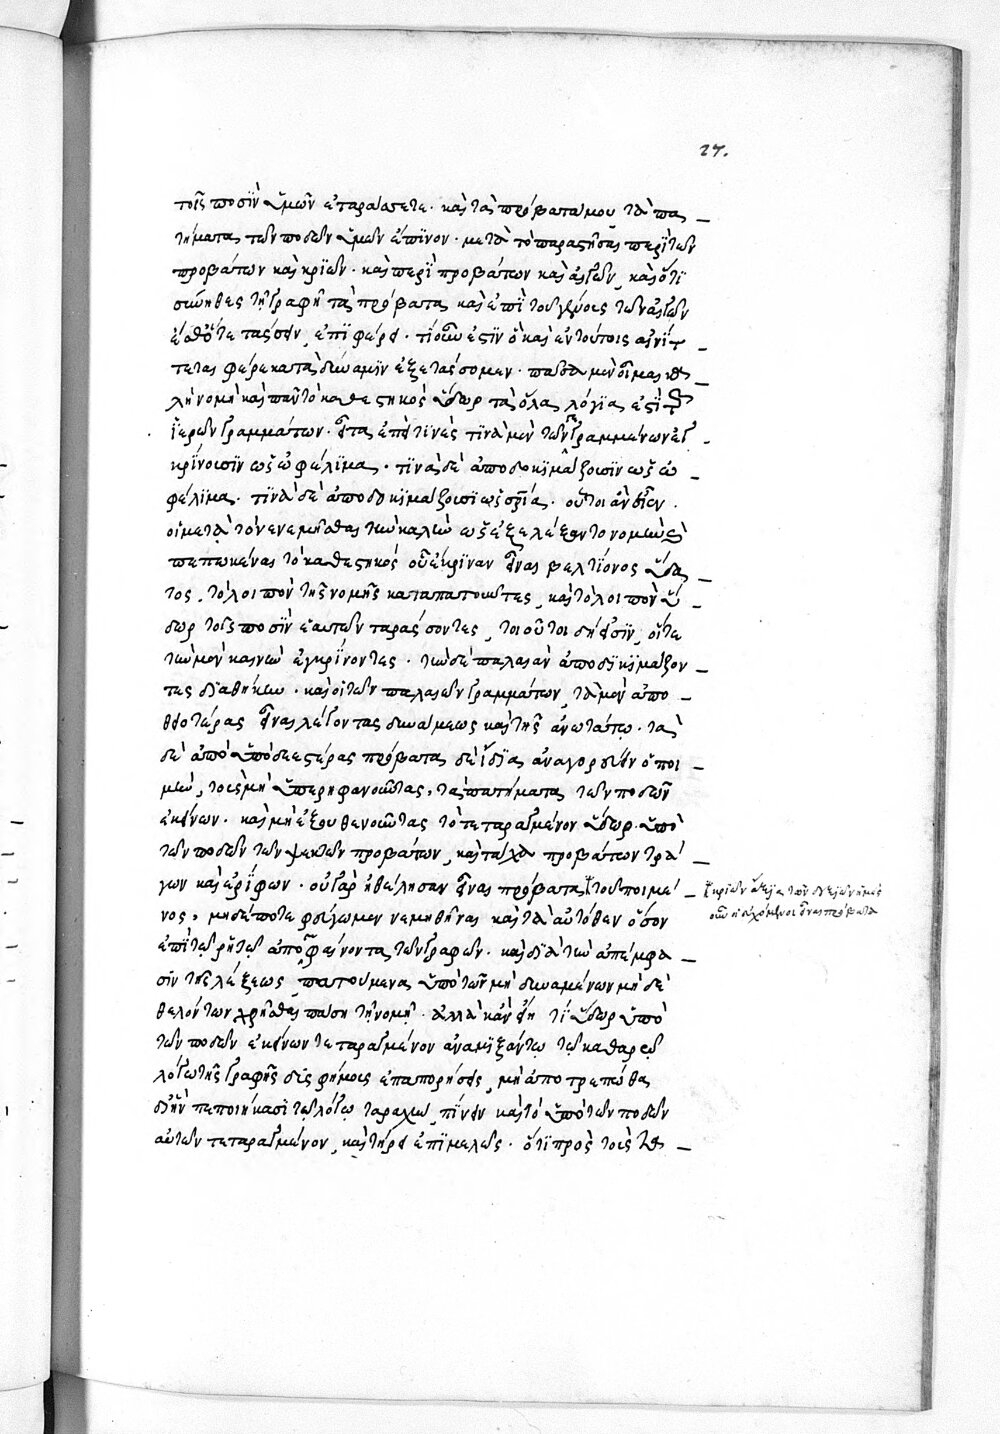 27.
τοῖς ποσὶν ὑμῶν ἐταράσσετε· καὶ τὰ πρόβατά μου τὰ πα
τήματα τῶν ποδῶν ὑμῶν ἔπινον· μετὰ τὸ παραστῆσαι περὶ τῶν
προβάτων καὶ κριῶν· καὶ περὶ προβάτων καὶ αἰγῶν, καὶ ὅτι
σύνηθες τῇ γραφῇ τὰ πρόβατα καὶ ἐπὶ τοῦ γένους τῶν αἰγῶν
τάσσειν, ἐπιφέρει· τί οὖν ἐστὶν ὃ καὶ ἐν τούτοις αἰνίτ
τεται φέρε κατὰ δύναμιν ἐξετάσομεν· πᾶσα μὲν οἶμαι κα
λὴ νομὴ καὶ πᾶν τὸ καθεστηκὸς ὕδωρ τὰ ὅλα λόγια ἐστὶ τῶν
ἱερῶν γραμμάτων· ἐπεί τινὲς τινὰ μὲν τῶν γεγραμμένων ἐγ
κρίνουσιν ὡς ὠφέλιμα· τινὰ δὲ ἀποδοκιμάζουσιν ὡς οὐ
φέλιμα· τινὰ δὲ ἀποδοκιμάζουσι ὡς οὐ σωτήρια· οὗτοι ἂν εἶεν
οἱ μετὰ τὸ νενεμῆσθαι τὴν καλὴν ὡς ἐξελέξαντο νομὴν καὶ
πεπωκέναι τὸ καθεστηκός ὃ ἔκριναν εἶναι βελτίονος ὕδα
τος, τὸ λοιπὸν τῆς νομῆς καταπατοῦντες, καὶ τὸ λοιπὸν ὕ
δωρ τοῖς ποσὶν ἑαυτῶν ταράσσοντες, τοιοῦτοι δή εἰσιν, οἵ τε
τὴν μὲν καινὴν ἐγκρίνοντες· τὴν δὲ παλαιὰν ἀποδοκιμάζον
τες διαθήκην· καὶ οἱ τῶν παλαιῶν γραμμάτων, τὰ μὲν ἀπὸ
θειοτέρας εἶναι λέγοντας δυνάμεως καὶ τῆς ἀνωτάτω· τὰ
δὲ ἀπὸ ὑποδεεστέρας πρόβατα δὲ ἴδια ἀναγορεύει ὁ ποι
μὴν, τοὺς μὴ ὑπερηφανοῦντας, τὰ πατήματα τῶν ποδῶν
ἐκείνων· καὶ μὴ ἐξουθενοῦντας τὸ τεταραγμένον ὕδωρ ὑπὸ
τῶν ποδῶν τῶν ψεκτῶν προβάτων, καὶ τάχα προβάτων τρά
γων καὶ ἐρίφων· οὐ γὰρ ἠθέλησαν εἶναι πρόβατα τοῦ ποιμέ
νος, μηδέποτε φεύγωμεν νεμηθῆναι καὶ τὰ αὐτόθεν ὅσον
ἐπὶ τῷ ῥητῷ ἀποφαίνονται τῶν γραφῶν· καὶ διὰ τὴν ἀπέμφα
σιν τῆς λέξεως, πατούμενα ὑπὸ τῶν μὴ δυναμένων μὴ δὲ
θελόντων χρῆσθαι πάσῃ τῇ νομῇ· ἀλλὰ κἂν ᾖ τι ὕδωρ ὑπὸ
τῶν ποδῶν ἐκείνων τεταραγμένον ἀναμιξάντων τῷ καθαρῷ
λόγῳ τῆς γραφῆς δυσφήμους ἐπαπορήσεις, μὴ ἀποτρεπώμεθα
δι' ἣν πεποιήκασι τῷ λόγῳ ταραχὴν πίνειν καὶ τὸ ὑπὸ τῶν ποδῶν
αὐτῶν τεταραγμένον, καὶ τήρει ἐπιμελῶς· ὅτι πρὸς τοὺς